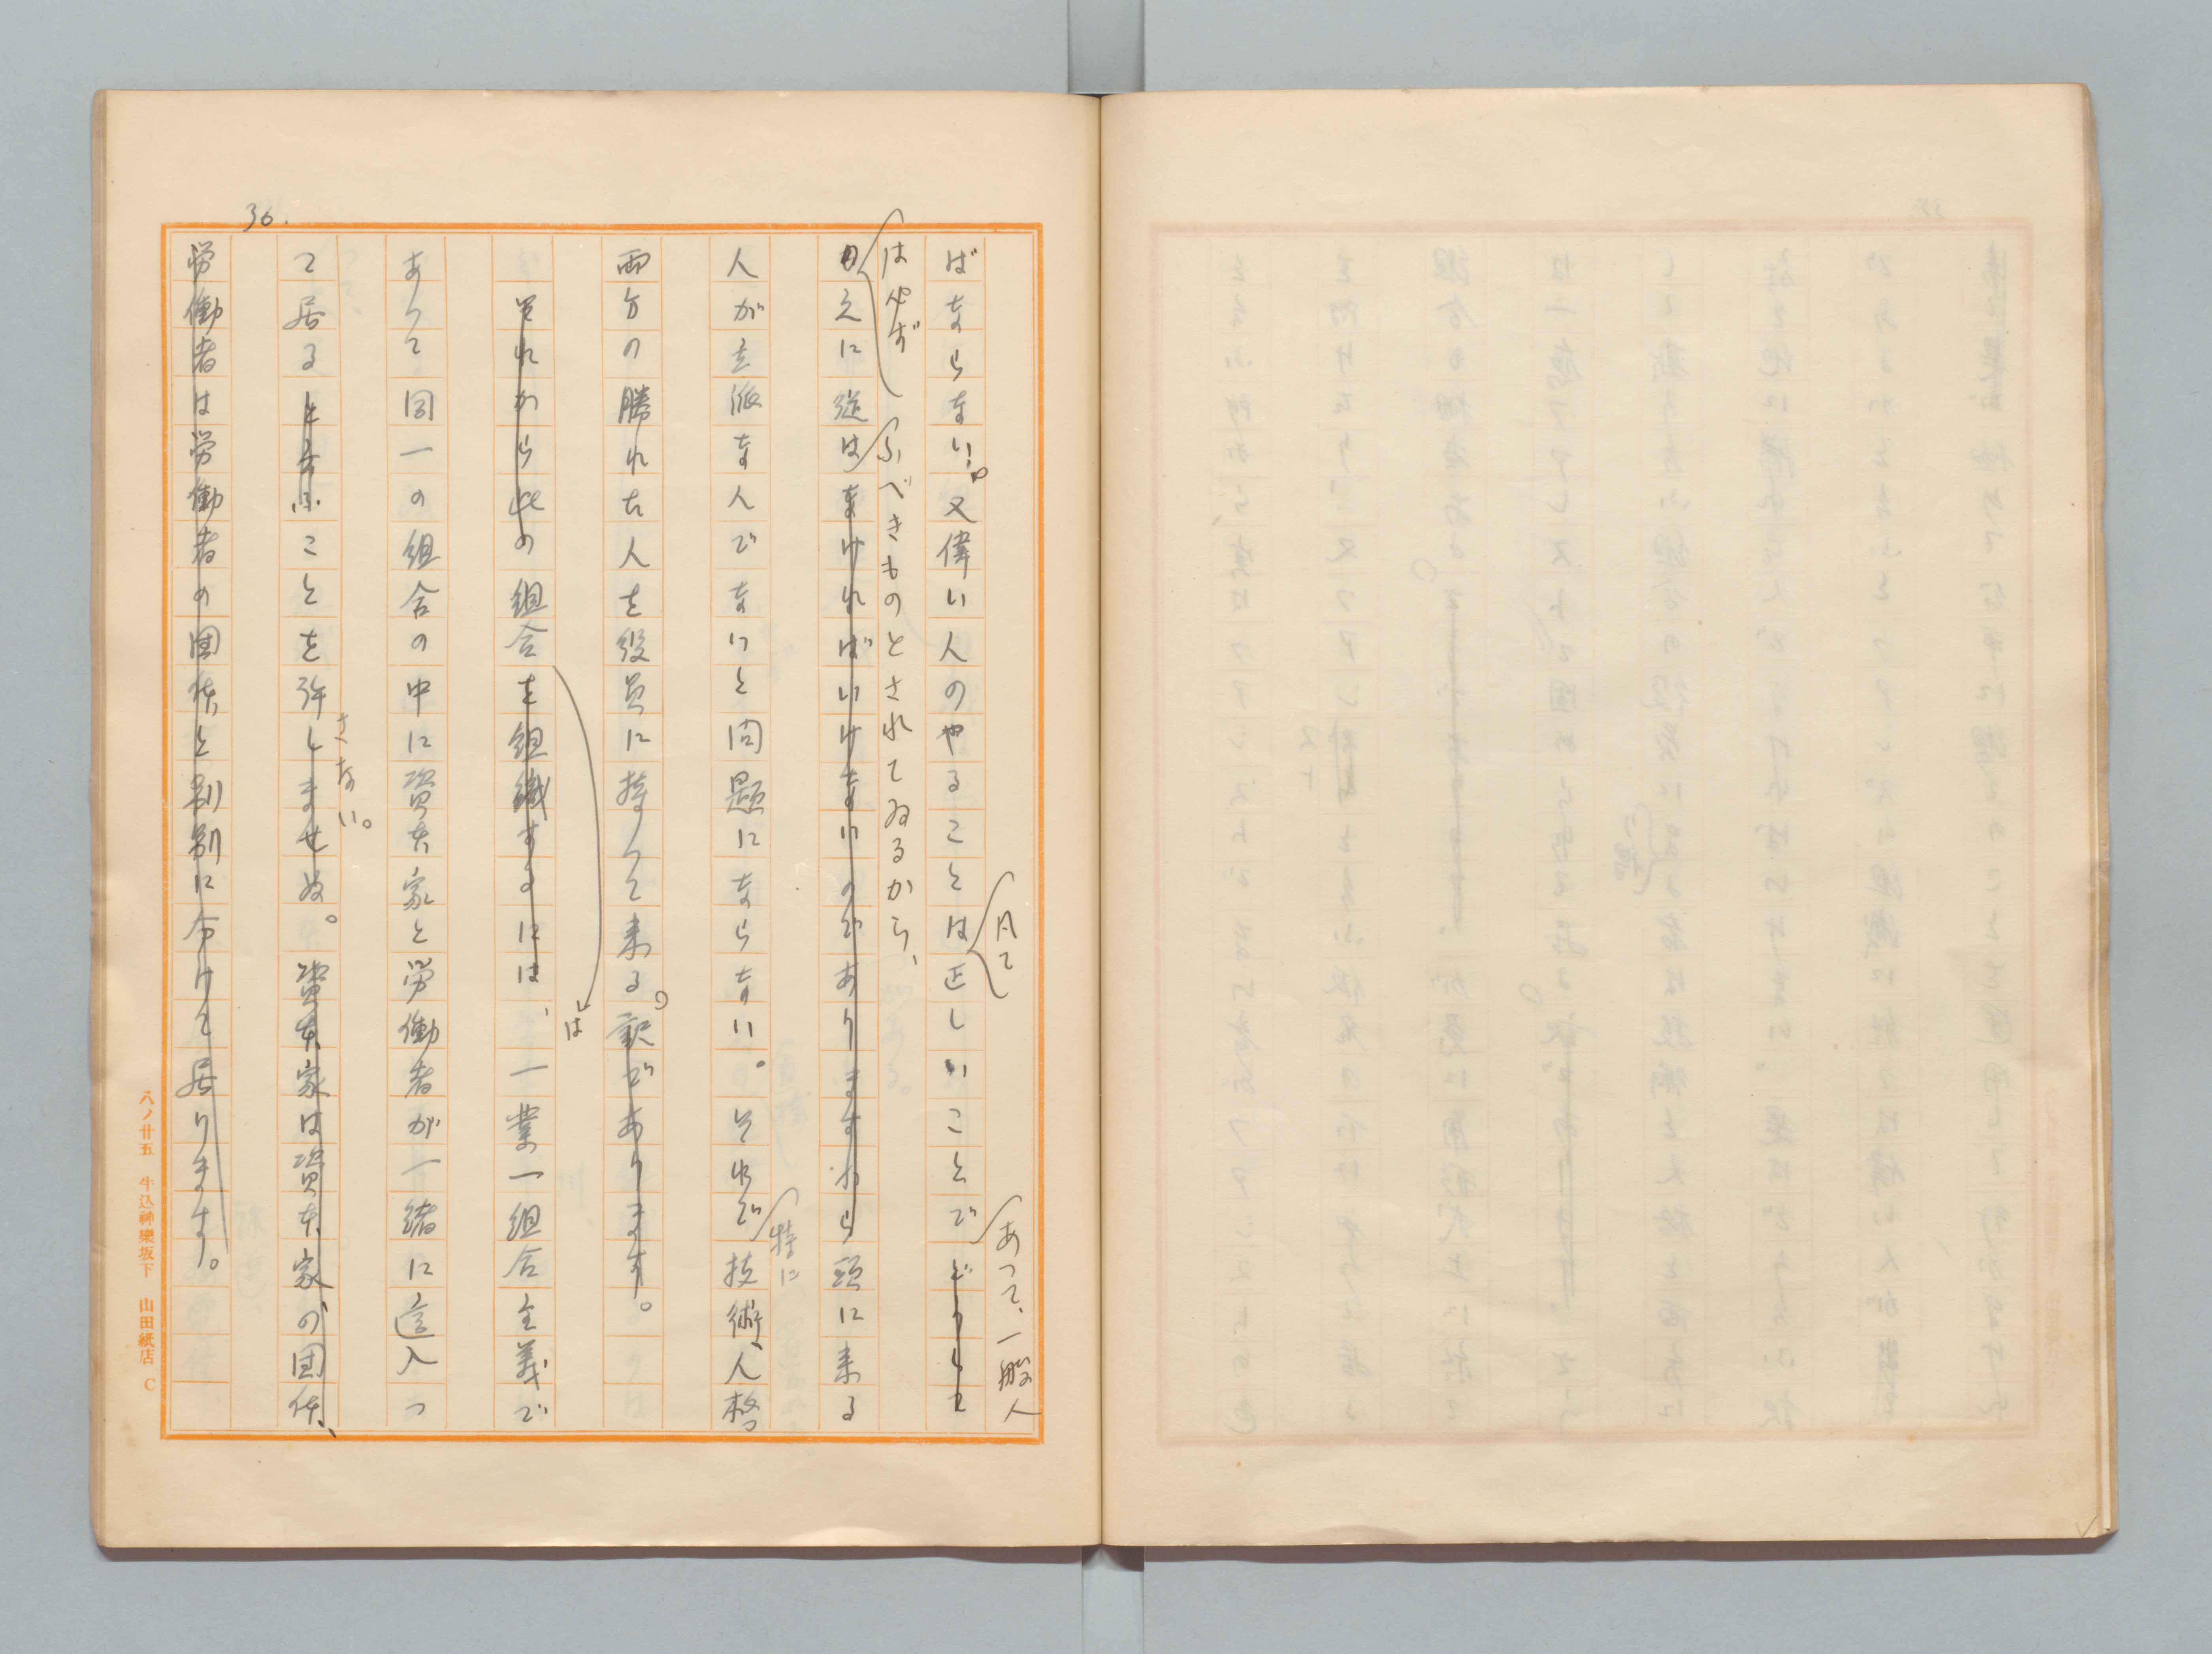 36.
凡て
あつて、一般人
ばならない。又偉い人のやることは正しいことでどうしても
はやがし
ふべきものとされてゐるから、
日えに従はなければいけないのでありますから頭に来る
特に
人が立派な人でないと問題にならない。それで技術、人格
両方の勝れた人を役員に持つて来る。訳であります。
は
それから此の組合を組織するには、一業一組合主義で
あつて同一の組合の中に資本家と労働者が一緒に這入つ
さない。
て居ると云ふことを許しませぬ。資本家は資本家の団体、
労働者は労働者の団体と別別に分けて居ります。
八ノ廿五 牛込神樂坂下 山田紙店 C